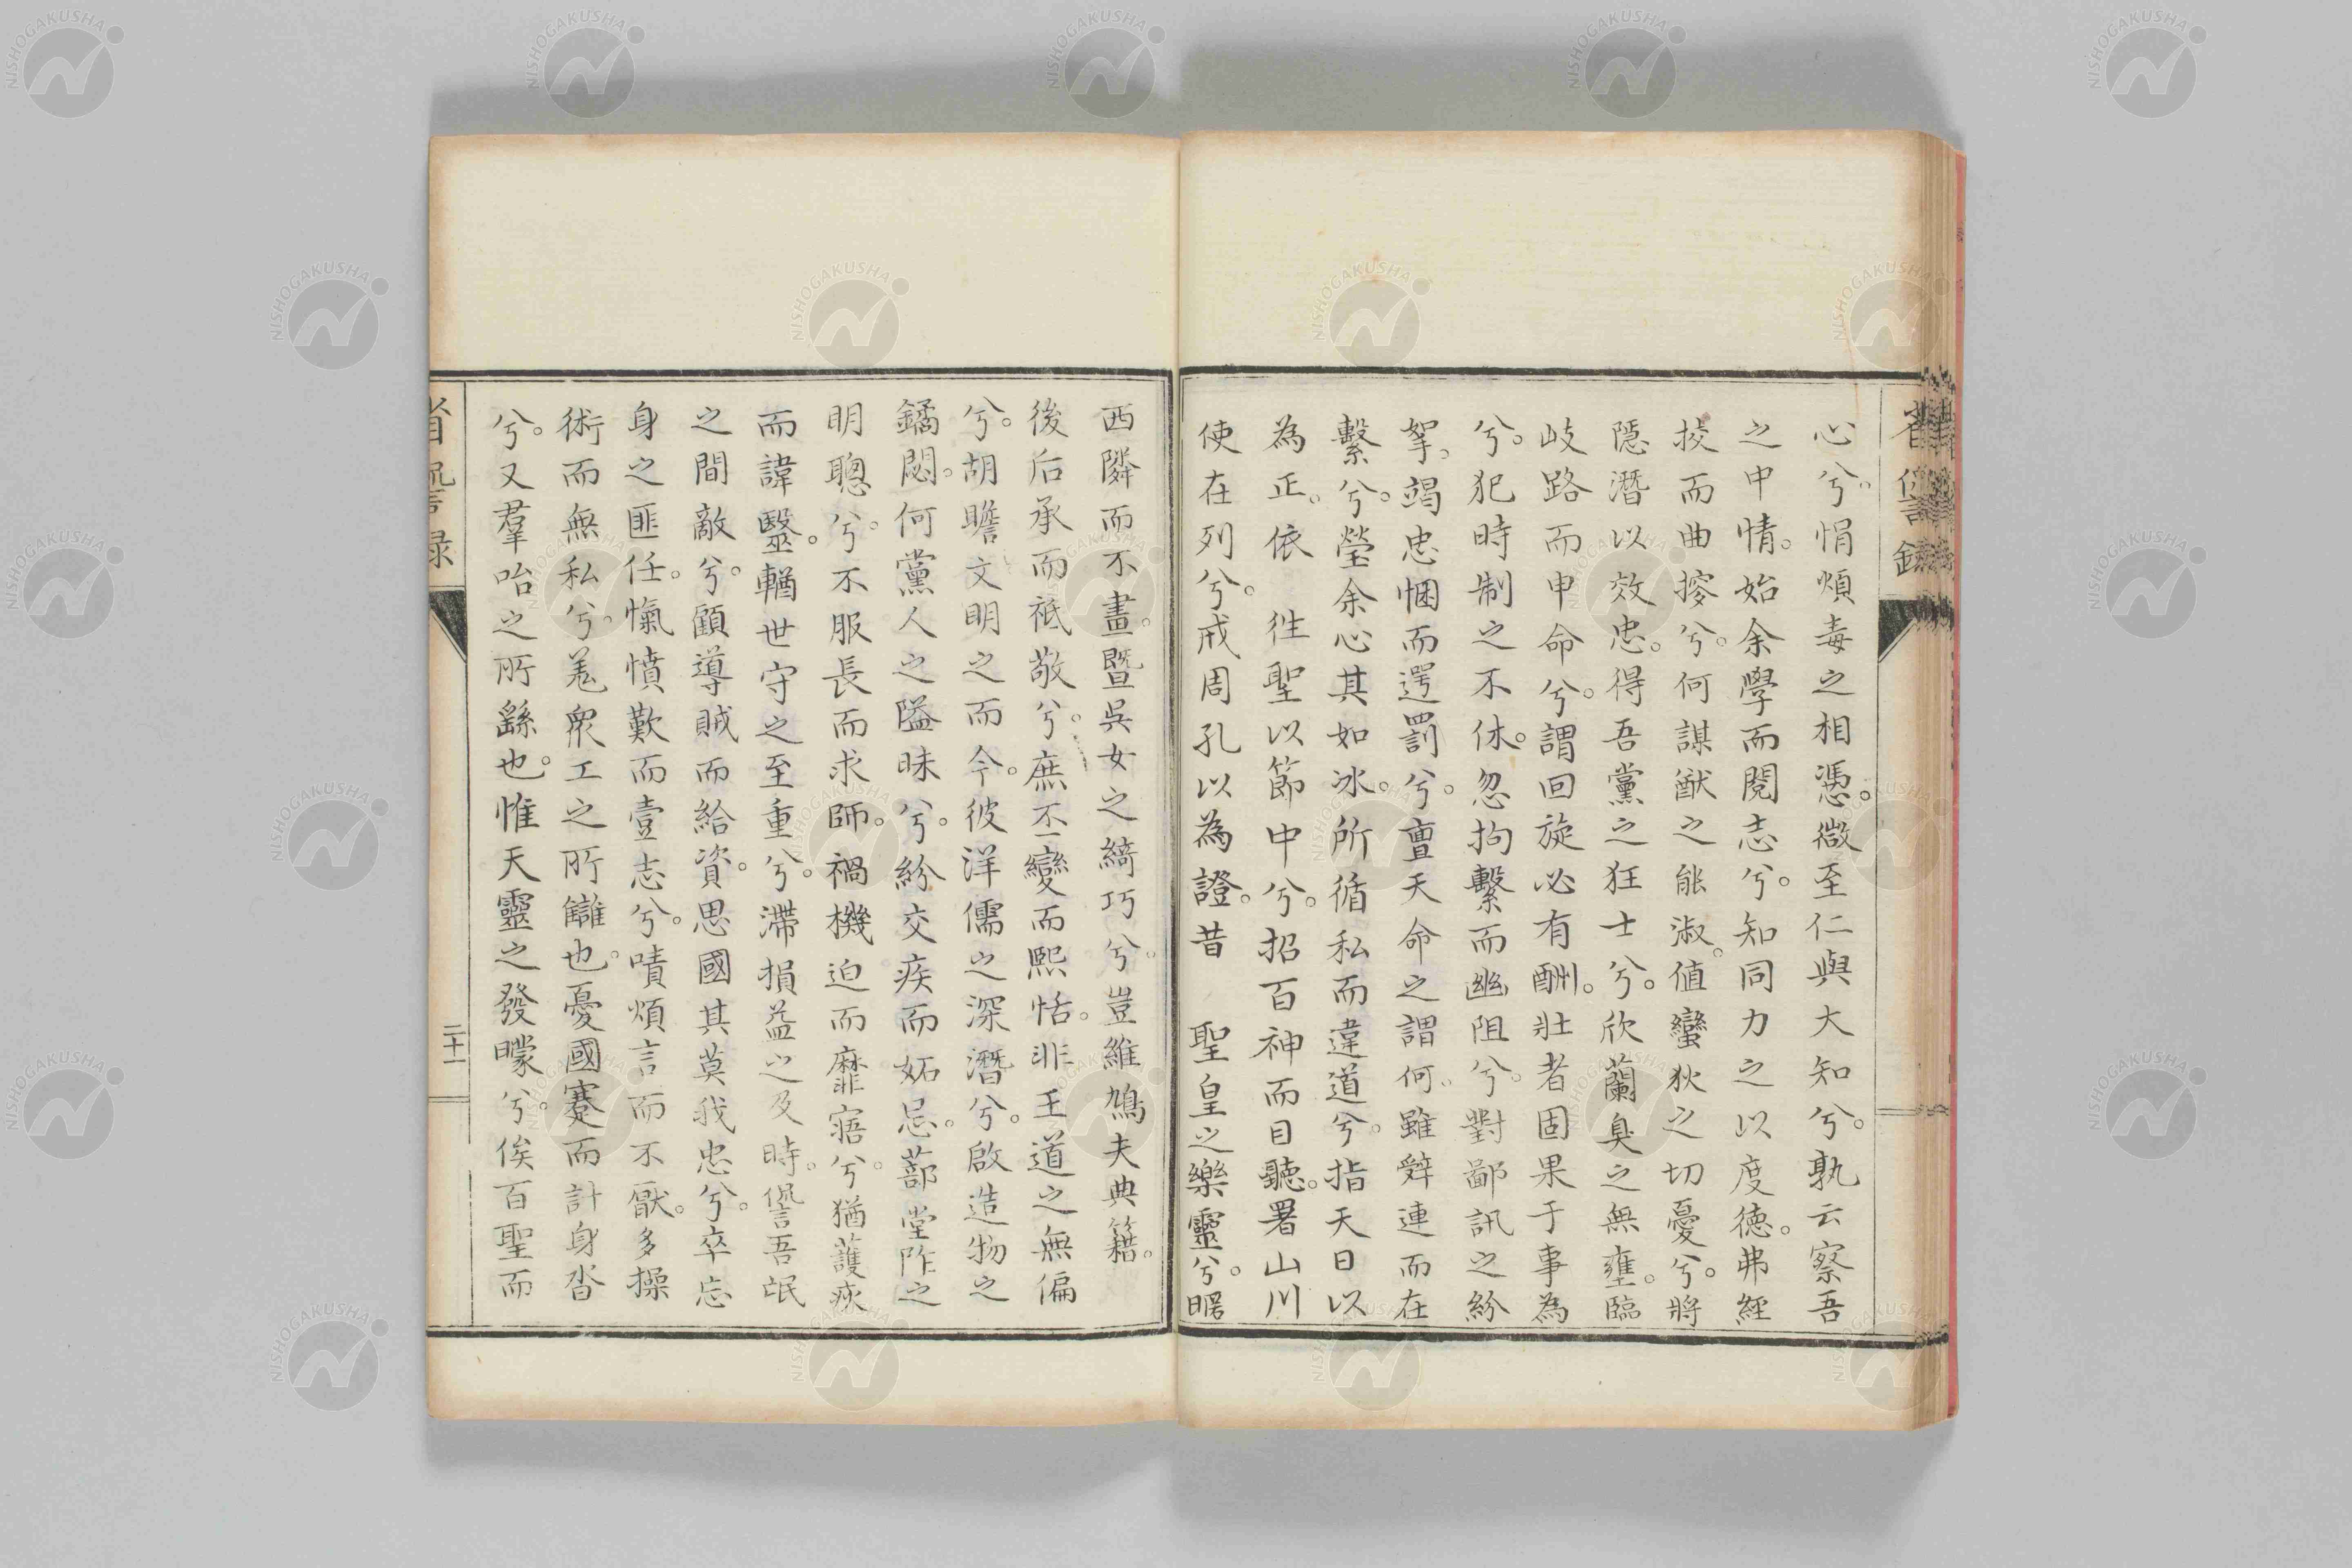 省諐録
心兮。悁煩毒之相慿。微至仁與大知兮。孰云察吾
之中情。始余學而閱志兮。知同力之以度徳。弗經
挍而曲摎兮。何謀猷之能淑。値蠻狄之切憂兮。將
隱潛以效忠。得吾黨之狂士兮。欣蘭臭之無壅。臨
岐路而申命兮。謂回旋必有酬。壯者固果于事為
兮。犯時制之不休。忽拘繫而幽阻兮。對鄙訊之紛
挐。竭忠悃而遻罰兮。亶天命之謂何。雖辤連而在
繫兮。瑩余心其如冰。所循私而違道兮。指天日以
為正。依 徃聖以節中兮。招百神而目聽。署山川
使在列兮。戒周孔以為證。昔 聖皇之樂靈兮。暱
西隣而不畫。暨吳女之綺巧兮。豈維鳩夫典籍。
後后承而祗敬兮。庶丕變而熙恬。非王道之無偏
兮。胡瞻文明之而今。彼洋儒之深潛兮。啟造物之
鐍閟。何黨人之隘昧兮。紛交疾而妬忌。蔀堂阼之
明聰兮。不服長而求師。禍機迫而靡寤兮。猶護疢
而諱毉。輶世守之至重兮。滯損益之及時。諐吾氓
之間敵兮。顧導賊而給資。思國其莫我忠兮。卒忘
身之匪任。愾憤歎而壹志兮。嘖煩言而不厭。多操
術而無私兮。羗衆工之所讎也。憂國蹇而計身沓
兮。又羣咍之所繇也。惟天靈之發曚兮。俟百聖而
省諐録
二十一
NISHOGAKUSHA